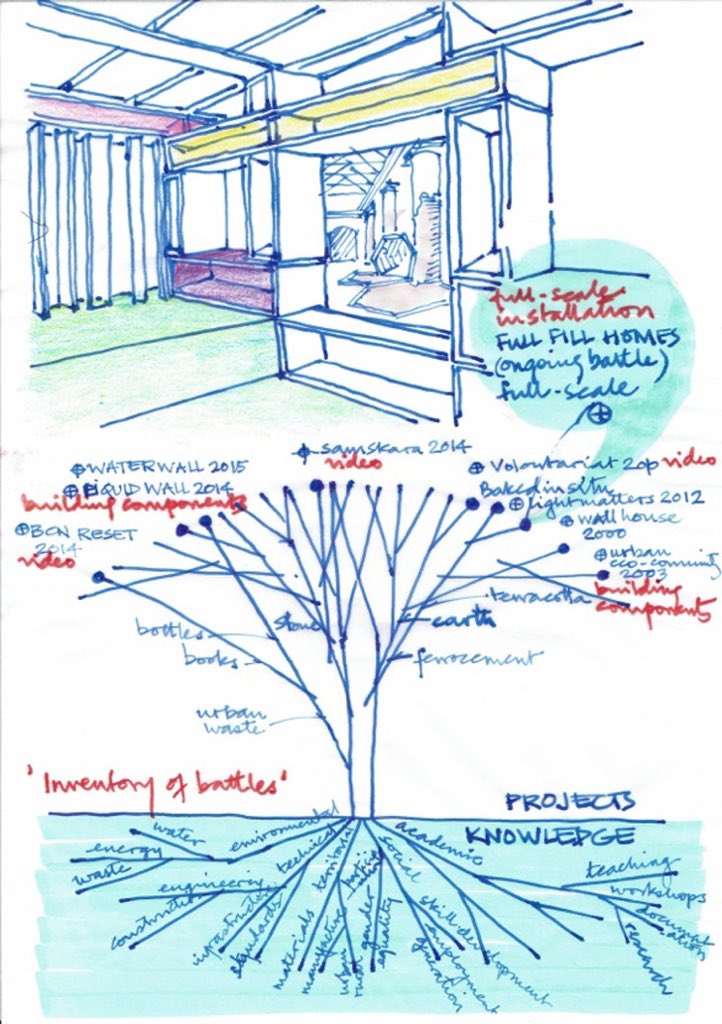 full-scale
installation
FULL FILL HOMES
(ongoing battle)
full-scale
samskara 2014
video
WATERWALL 2015
LIQUID WALL 2014
building components
BCN RESET
2014
video
Voluntariat 20p video
Baked in situ
light matters 2012
wall house
2000
urban
eco-community
2003
building
components
terracotta
earth
ferrocement
stone
bottles
books
urban
waste
'Inventory of battles'
PROJECTS
KNOWLEDGE
environmental
water
energy
waste
technical
engineering
construction
infrastructure
standards
territorial
materials
manufacture
urban
rural
social
gender
equality
skill development
employment
generation
academic
teaching
workshops
document
ation
research